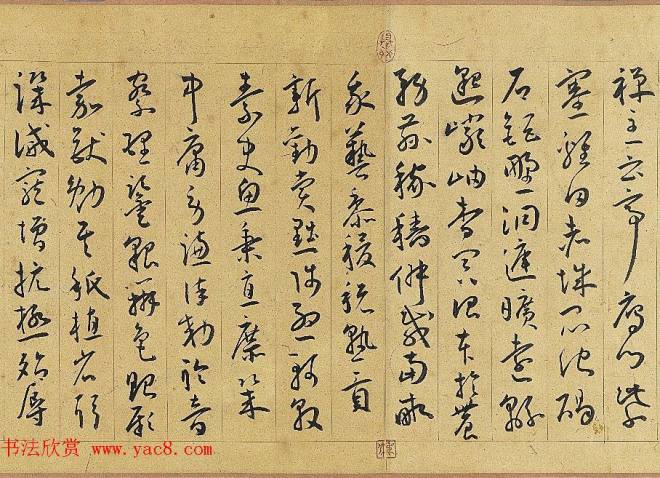 禪主云亭雁門紫
塞雞田赤城昆池碣
石鉅野洞庭曠遠綿
邈巖岫杳冥治本於農
務茲稼穡俶載南畝
我藝黍稷稅熟貢
新勸賞黜陟孟軻敦
素史魚秉直庶幾
中庸勞謙謹敕聆音
察理鑒貌辨色貽厥
嘉猷勉其祗植省躬
譏誡寵增抗極殆辱
书法欣赏 www.yac8.com